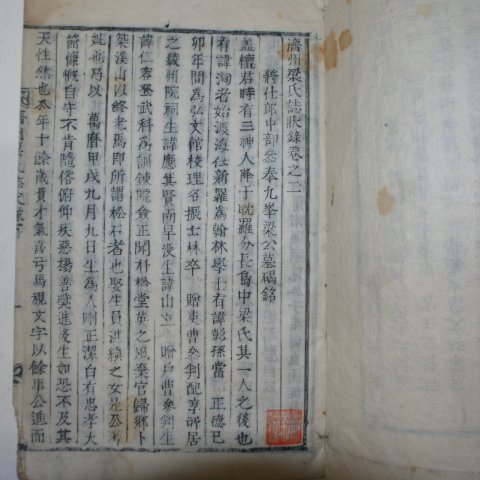 濟州梁氏誌狀錄卷之二
將仕郎中部參奉九峯梁公墓碣銘
盖檀君時有三神人降于耽羅分長島中梁氏其一人之後也
有諱洵者始渡海仕新羅爲翰林學士有諱彭孫當 正德己
卯年間爲弘文館校理名振士林卒 贈吏曹參判配享所居
之綾州院祠生諱應箕賢而早沒生諱山立 贈戶曹參判生
諱仁容登武科爲訓鍊院僉正聞朴松堂英之風棄官歸鄕卜
築溪山以終老焉卽所謂松石者也娶生員洪縝之女是公考
妣也公以 萬曆甲戌九月九日生爲人剛正潔白有忠孝大
節慷慨自守不肯隨俗俯仰疾惡揚善奬進後生如恐不及其
天性然也公年十餘歲貫才气喜弓馬視文字以餘事公進而